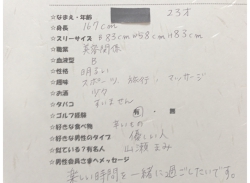 ★なまえ・年齢 23才
★身長 167cm
★スリーサイズ B83cm W58cm H83cm
★職業 美容関係
★血液型 B
★性格 明るい
★趣味 スポーツ、旅行、マッサージ
★お酒 少々
★タバコ すいません
★ゴルフ経験 有・無
★好きな食べ物
★好きな男性のタイプ 優しい人
★似ている?有名人
★男性会員さまへメッセージ
楽しい時間を一緒に過ごしたいです。